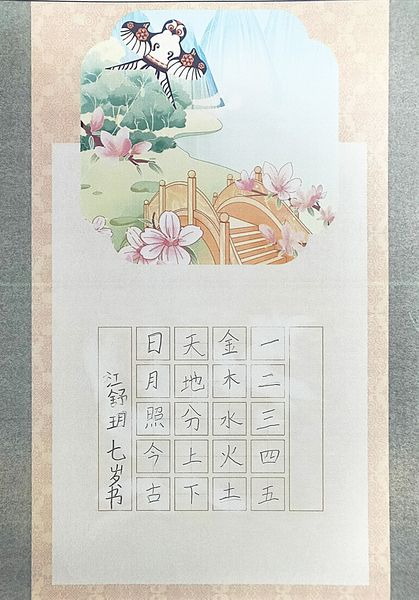 一二三四五
金木水火土
天地分上下
日月照今古
江舒玥 七岁书